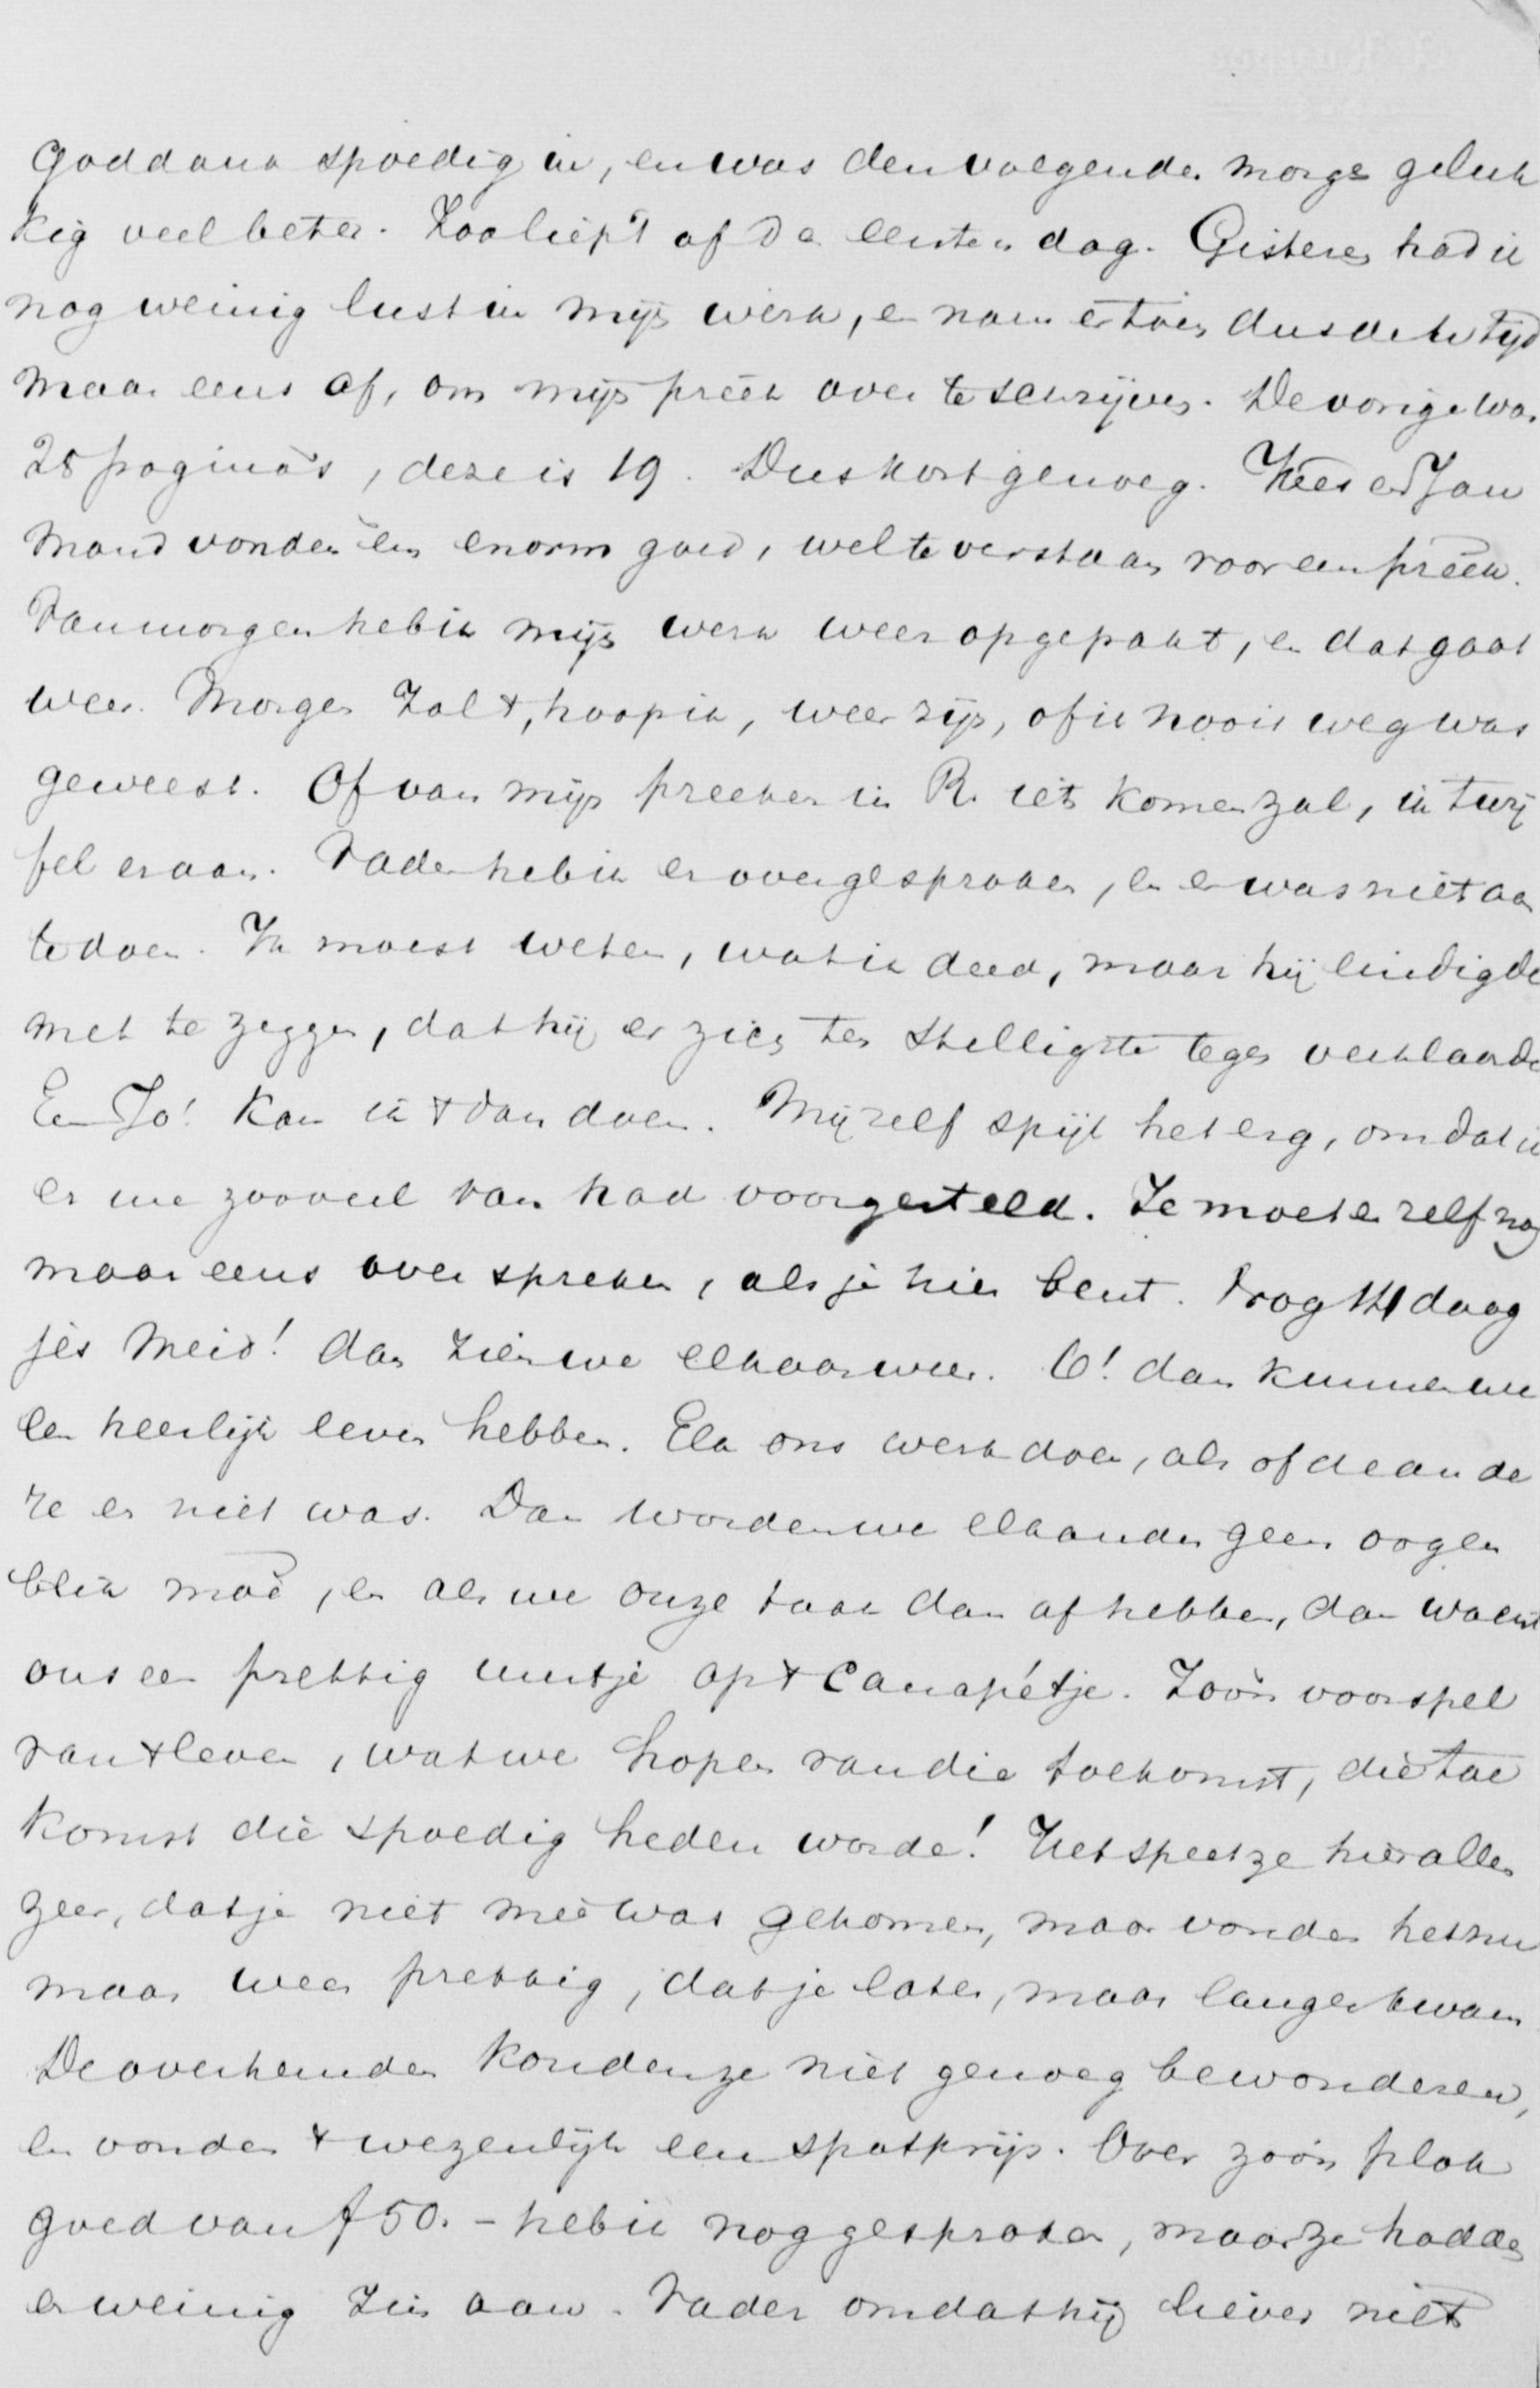 Goddank spoedig in, en was den volgenden morgen geluk
kig veel beter. Zoo liep 't af de eersten dag. Gisteren had ik
nog weinig lust in mijn werk, en nam er toen dus de tijd
maar eens af, om mijn preek over te schrijven. De vorige was
28 pagina's, deze is 19. Dus kort genoeg. Kees en Jan
Mond vonden 'em enorm goed, wel te verstaan voor een preek.
Van morgen heb ik mijn werk weer opgepakt, en dat gaat
weer. Morgen zal 't, hoop ik, weer zijn, of ik nooit weg was
geweest. Of van mijn preeken in R. iets komen zal, ik twij
fel eraan. Vader heb ik er over gesproken, en er was niet aan
te doen. Ik moest weten, wat ik deed, maar hij eindigde
met te zeggen, dat hij er zich ten stelligste tegen verklaarde
En Jo! Kan ik 't dan doen. Mij zelf spijt het erg, omdat ik
er me zooveel van had voorgesteld. Je moet er zelf nog
maar eens over spreken, als je hier bent. Nog 14 daag
jes Meid! dan zien we elkaar weer. O! dan kunnen we
een heerlijk leven hebben. Elk ons werk doen, als of de ande
re er niet was. Dan worden we elkander geen oogen
blik moe, en als we onze taak dan af hebben, dan wacht
ons een prettig uurtje op 't Canapétje. Zoo'n voorspel
van 't leven, wat we hopen van die toekomst, die toe
komst die spoedig heden worde! Het speet ze hier allen
zeer, dat je niet mee was gekomen, maar vonden het nu
maar weer prettig, dat je later, maar langer kwam.
De overhemden konden ze niet genoeg bewonderen,
en vonden 't wezenlijk een spotprijs. Over zoo'n plak
goed van ƒ50.- heb ik nog gesproken, maar ze hadden
er weinig zin aan. Vader omdat hij liever niet